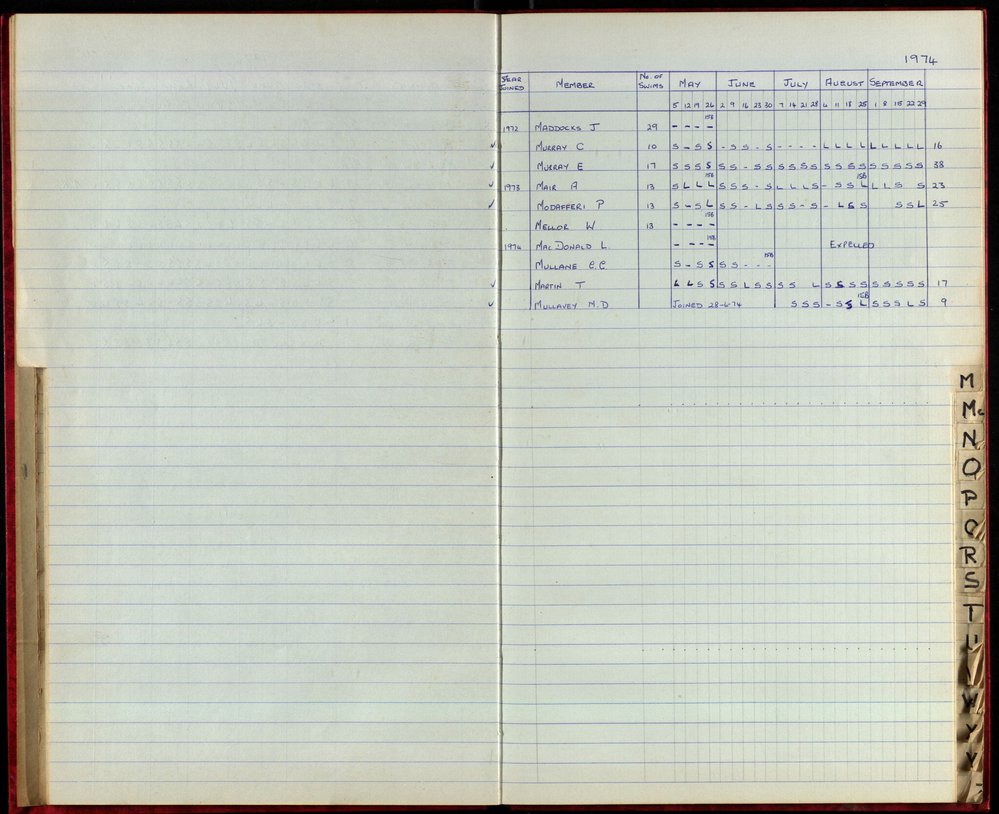 1974
YEAR JOINED MEMBER No. OF SWIMS MAY JUNE JULY AUGUST SEPTEMBER
5 12 19 26 2 9 16 23 30 7 14 21 28 4 11 18 25 1 8 15 22 29
1972 MADDOCKS J 29 - - - - 15B
✓ MURRAY C 10 S - S S - S S - S - - - - L L L L L L L L L 16
✓ MURRAY E 17 S S S S S S - S S S S S S S S S S S S S S S 38
✓ 1973 MAIR A 13 S L L L 15B S S S - S L L L S - S S L 15B L L S S 23
✓ MODAFFERI P 13 S - S L S S - L S S S - S - L S S S S L 25
MELLOR W 13 - - - - 15B
1974 MACDONALD L. - - - - 15B EXPELLED
MULLANE C.C. S - S S S S - - - 15B
✓ MARTIN T L L S S S S L S S S S L S S S S S S S S S 17
✓ MULLAVEY N.D JOINED 28-6-74 S S S - S S L 15B S S S L S 9
M
Mc
N
O
P
Q
R
S
T
U
W
Y